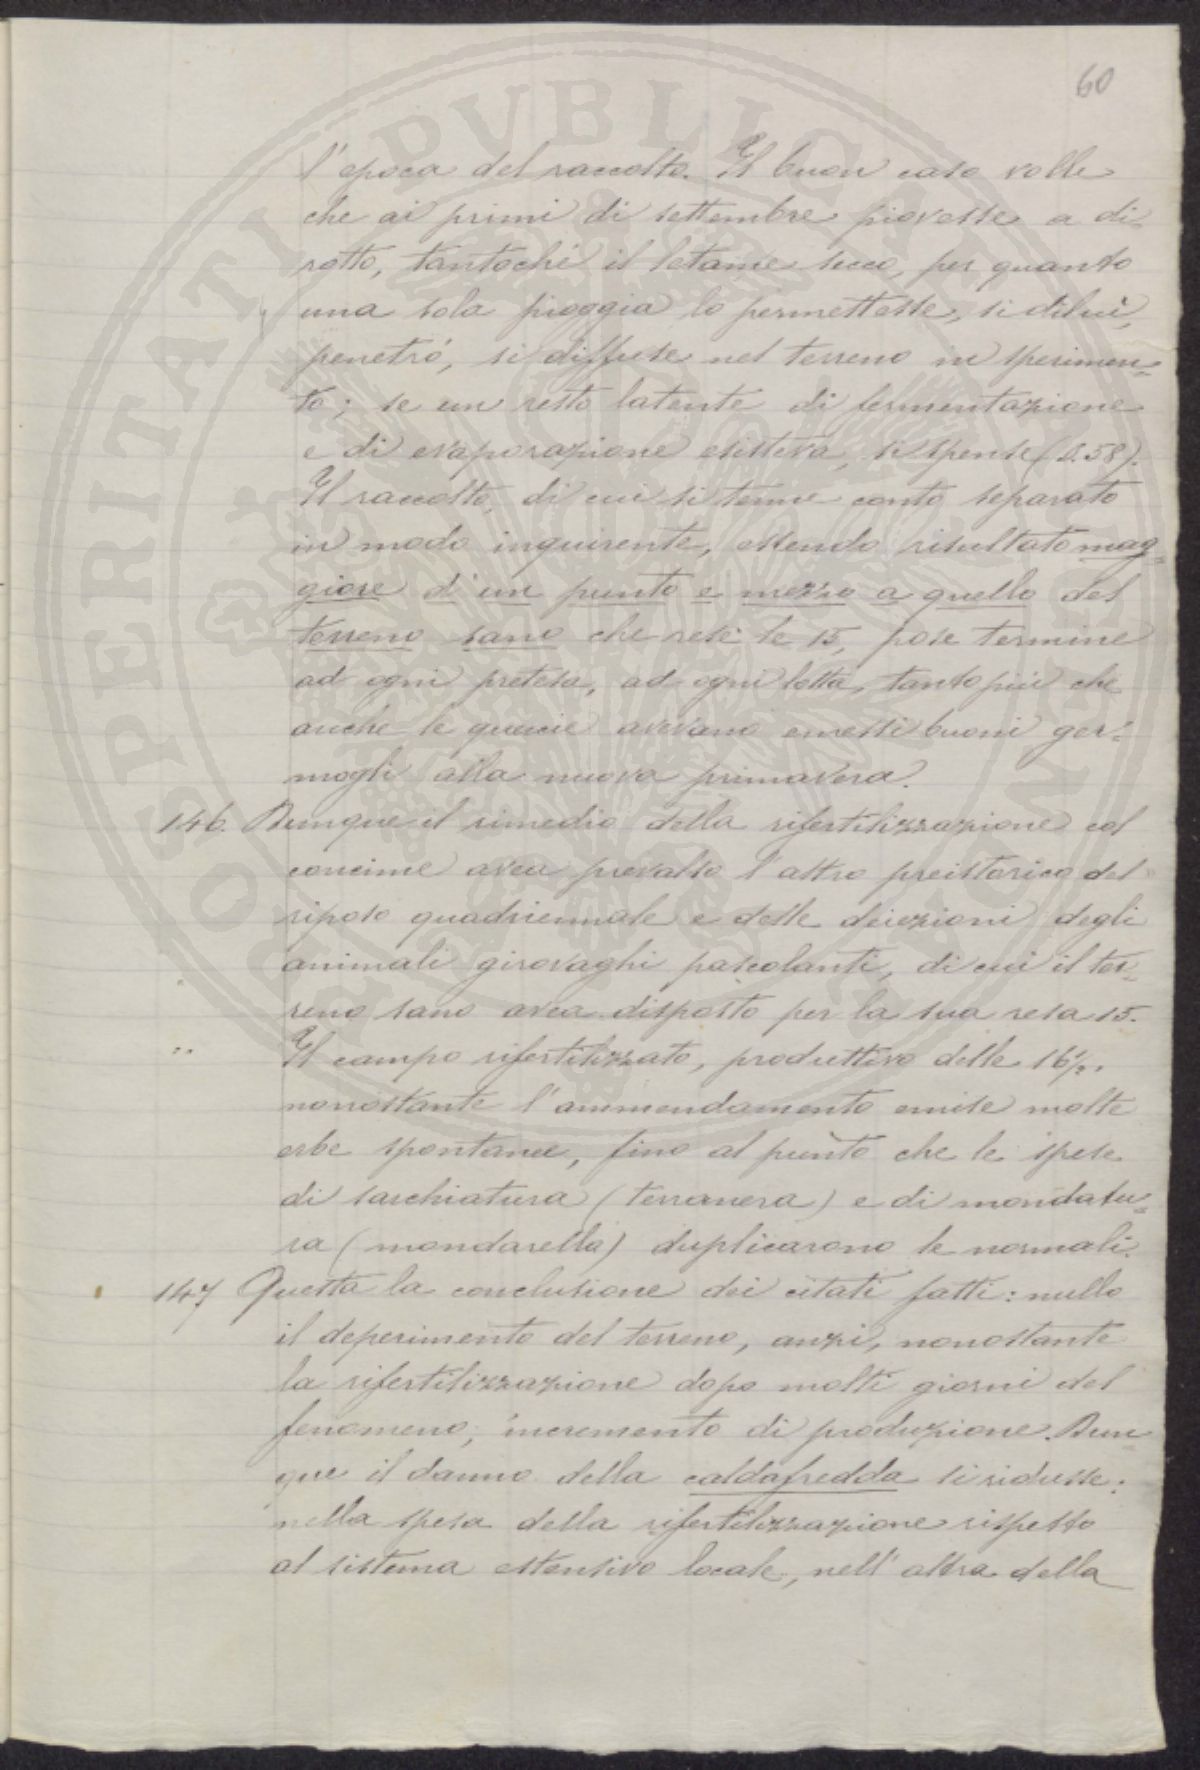 60
l'epoca del raccolto. Il buon caso volle
che ai primi di settembre piovesse a di-
rotto, tantochè il letame secco, per quanto
una sola pioggia lo permettesse, si diluì,
penetrò, si diffuse nel terreno in sperimen-
to; se un resto latente di fermentazione
e di evaporazione esisteva, si spense (§.58).
Il raccolto, di cui si tenne conto separato
in modo inquirente, essendo risultato mag-
giore d'un punto e mezzo a quello del
terreno sano che rese le 15, pose termine
ad ogni pretesa, ad ogni lotta, tanto più che
anche le quercie avevano emessi buoni ger-
mogli alla nuova primavera.
146. Dunque il rimedio della rifertilizzazione col
concime avea prevalso l'altro preistorico del
riposo quadriennale e delle deiezioni degli
animali girovaghi pascolanti, di cui il ter-
reno sano avea disposto per la sua resa 15.
Il campo rifertilizzato, produttivo delle 16½,
nonostante l'ammendamento emise molte
erbe spontanee, fino al punto che le spese
di sarchiatura (terranera) e di mondatu-
ra (mondarella) duplicarono le normali.
147 Questa la conclusione dei citati fatti: nullo
il deperimento del terreno, anzi, nonostante
la rifertilizzazione dopo molti giorni del
fenomeno, incremento di produzione. Dun-
que il danno della caldafredda si ridusse:
nella spesa della rifertilizzazione rispetto
al sistema estensivo locale, nell'altra della
PROSPERITATI PUBLICAE